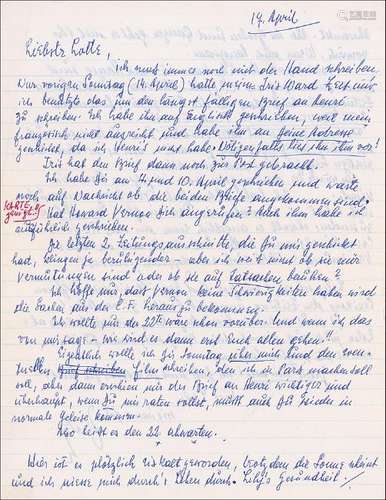 19. April
Liebste Lotte,
ich muss immer noch mit der Hand schreiben.
Am vorigen Sonntag (14. April) hatte Iris Ward Zeit und
ich benützte das um den längst fälligen Brief an Henri
zu schreiben. Ich habe ihm auf Englisch geschrieben, weil mein
französisch nicht ausreicht und habe ihn an seine Adresse
geschickt, da ich Henri's nicht habe. Nötigenfalls lies ihm ihn vor!
Iris hat den Brief dann noch zur Post gebracht.
Ich habe Dir am 4. und 10. April geschrieben und warte
auf Nachricht ob die beiden Briefe angekommen sind.
Hat Howard Vernon Dich angerufen? Auch ihm habe ich
ausführlich geschrieben.
Die letzten 2 Zeitungsausschnitte, die Du mir geschickt
hast, klingen ja beruhigender – aber ich weiß nicht ob sie nur
Vermutungen sind oder ob sie auf Tatsachen beruhen?
Ich hoffe nur, dass Vernon keine Schwierigkeiten haben wird
die Sachen aus der C.F. herauszubekommen.
Ich wollte nur der 22te wäre schon vorüber. Und wenn ich das
von mir sage – wie wird es dann erst Euch allen gehen!!
Eigentlich wollte ich Dir Sonntag über mich und den even-
tuellen Film schreiben, den ich in Paris machen soll
aber dann erschien mir der Brief an Henri wichtiger und
überhaupt, wenn Du mir raten sollst, müsst auch Ihr wieder in
normale Geleise kommen.
Also heißt es den 22. abwarten.
Hier ist es plötzlich eiskalt geworden, trotzdem die Sonne scheint
und ich niese mich durch's Leben durch. Lily's Gesundheit